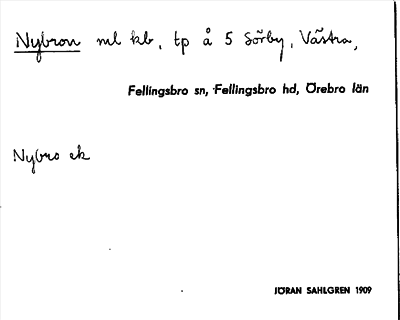 Nybron ml kb, tp å 5 Sörby, Västra,
Fellingsbro sn, Fellingsbro hd, Örebro län
Nybro ek
JÖRAN SAHLGREN 1909